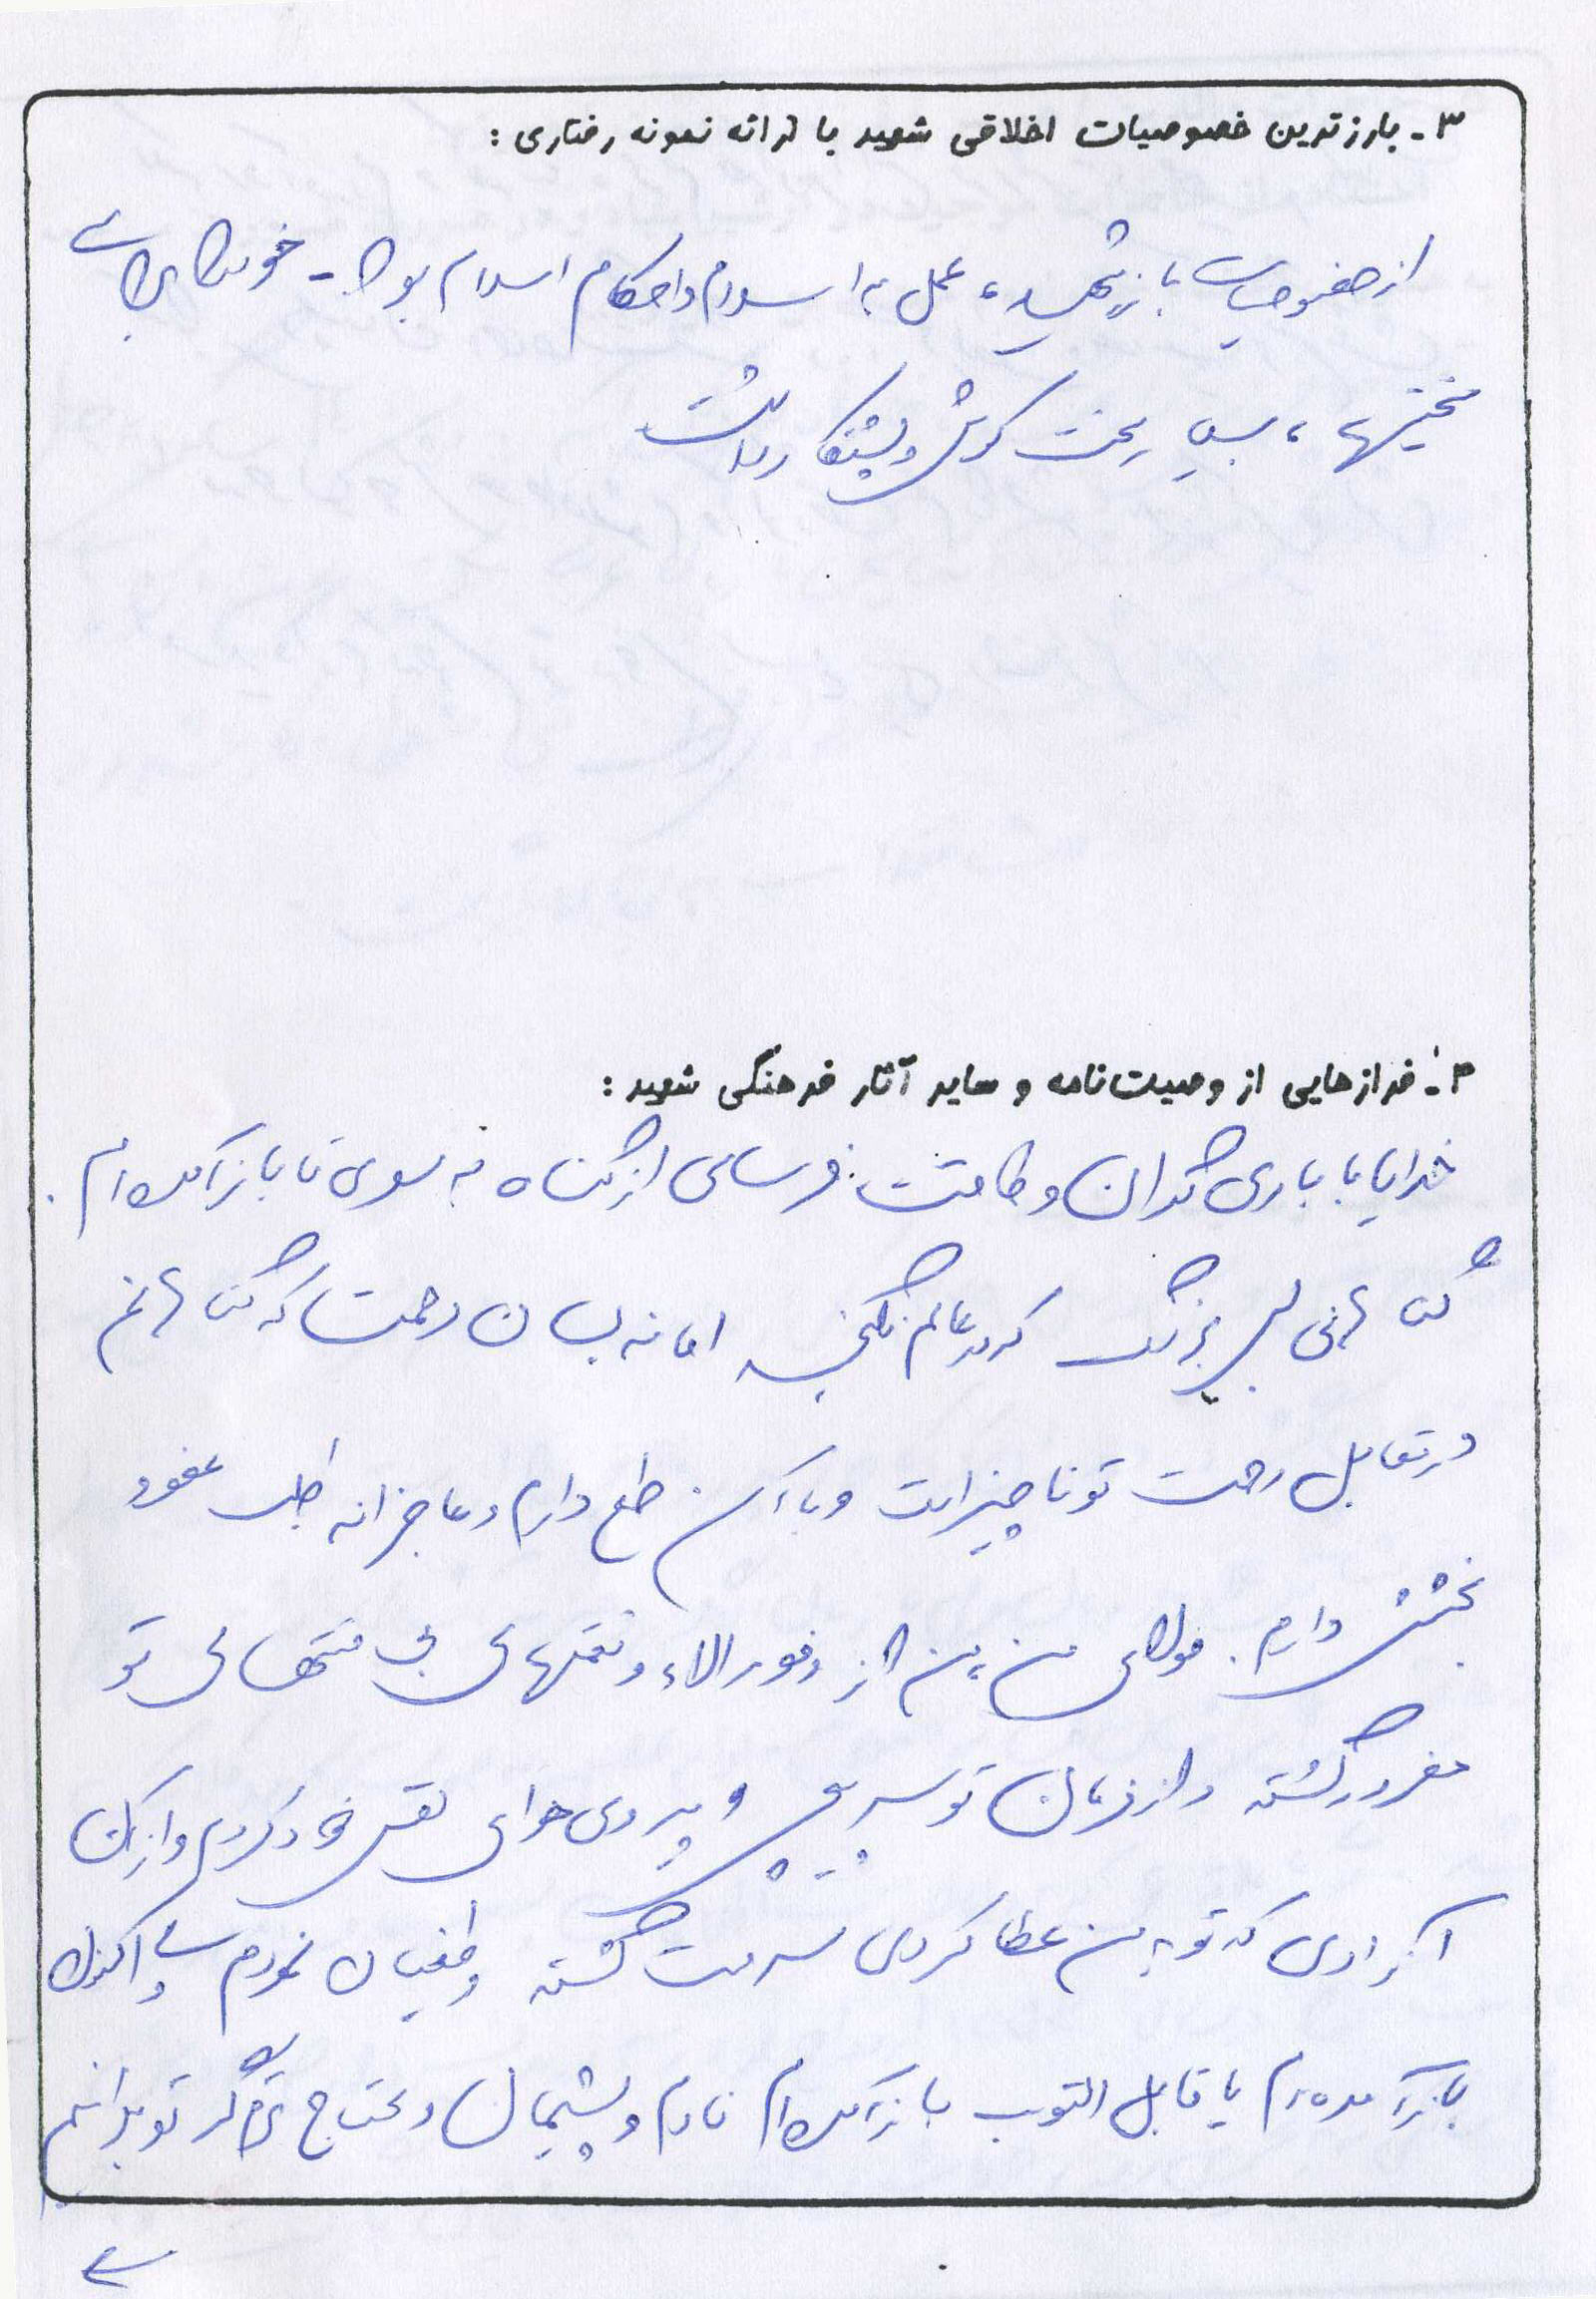 ۳- بارزترین خصوصیات اخلاقی شهید با ارائه نمونه رفتاری :
از خصوصیات بارز شهید، عمل به اسلام و احکام اسلام بود - خود را برای
سختیها، بسیار سخت کوش و پشتکار داشت
۴- فرازهایی از وصیت‌نامه و سایر آثار فرهنگی شهید :
خدایا با باری گران و طاقت فرسای از گناه به سوی تو باز آمده ام .
گناهانی بس بزرگ که در عالم نگنجد اما نه بسان رحمتت که گناهانم
در تقابل رحمت تو ناچیز است و به آن طمع دارم و عاجزانه طلب عفو و
بخشش دارم. مولای من، من از وفور الاء و نعمتهای بی منتهای تو
مغرور گشته و از فرمان تو سرپیچی و پیروی هوای نفس خود کردم و از آن
آزادی که تو به من عطا کردی سرمست گشته و طغیان نمودم ولی اکنون
باز آمده ام یا قابل التوب باز آمده ام نادم و پشیمان و محتاج ترا گر تو برانیم